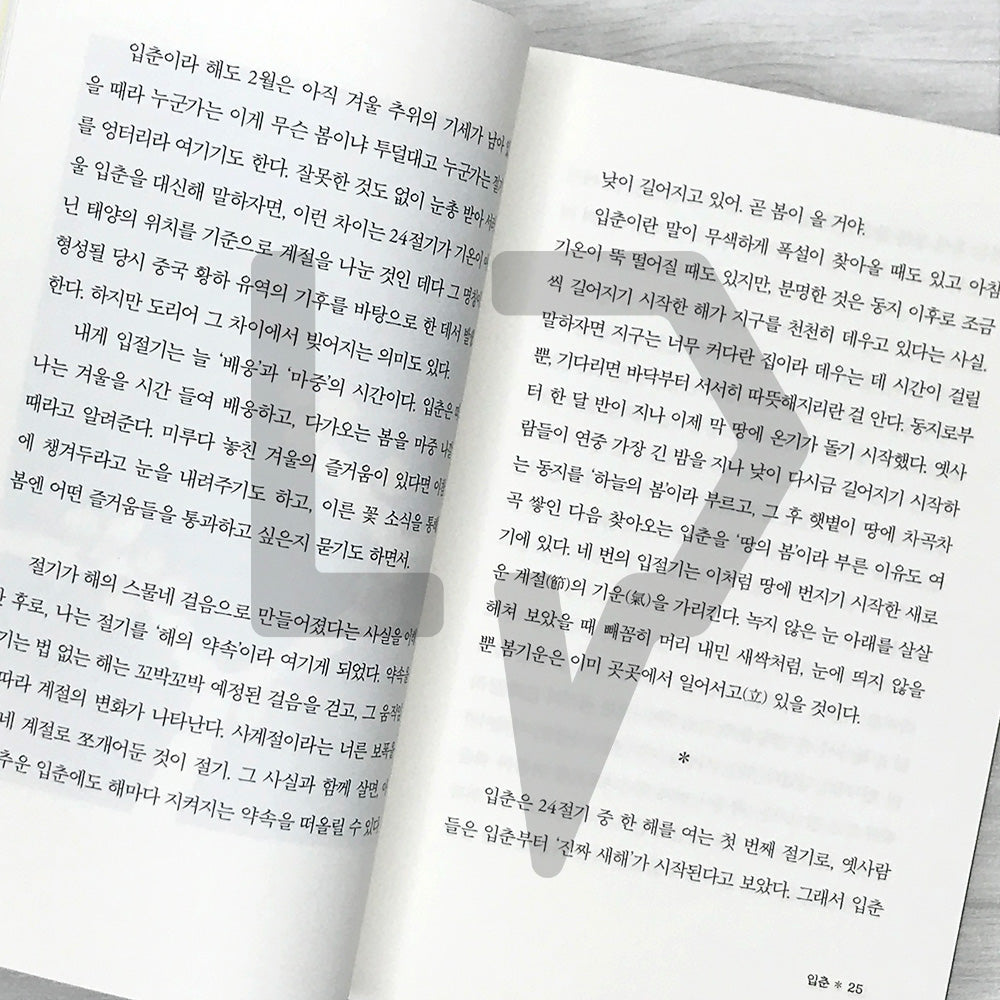 입춘이라 해도 2월은 아직 겨울 추위의 기세가 남아
을 때라 누군가는 이게 무슨 봄이냐 투덜대고 누군가는 절기
를 엉터리라 여기기도 한다. 잘못한 것도 없이 눈총 받아
울 입춘을 대신해 말하자면, 이런 차이는 24절기가 기온이
닌 태양의 위치를 기준으로 계절을 나눈 것인 데다 그 명칭이
형성될 당시 중국 황하 유역의 기후를 바탕으로 한 데서
한다. 하지만 도리어 그 차이에서 빚어지는 의미도 있다.
내게 입절기는 늘 ‘배웅’과 ‘마중’의 시간이다. 입춘은
나는 겨울을 시간 들여 배웅하고, 다가오는 봄을 마중
때라고 알려준다. 미루다 놓친 겨울의 즐거움이 있다면
에 챙겨두라고 눈을 내려주기도 하고, 이른 꽃 소식을
봄엔 어떤 즐거움들을 통과하고 싶은지 묻기도 하면서.
절기가 해의 스물네 걸음으로 만들어졌다는 사실을
후로, 나는 절기를 ‘해의 약속’이라 여기게 되었다. 약속을
기는 법 없는 해는 꼬박꼬박 예정된 걸음을 걷고, 그
따라 계절의 변화가 나타난다. 사계절이라는 너른 보폭을
네 계절로 쪼개어둔 것이 절기. 그 사실과 함께 살면
추운 입춘에도 해마다 지켜지는 약속을 떠올릴 수 있다.
낮이 길어지고 있어. 곧 봄이 올 거야.
입춘이란 말이 무색하게 폭설이 찾아올 때도 있고 아침
기온이 뚝 떨어질 때도 있지만, 분명한 것은 동지 이후로 조금
씩 길어지기 시작한 해가 지구를 천천히 데우고 있다는 사실.
말하자면 지구는 너무 커다란 집이라 데우는 데 시간이 걸릴
뿐, 기다리면 바닥부터 서서히 따뜻해지리란 걸 안다. 동지로부
터 한 달 반이 지나 이제 막 땅에 온기가 돌기 시작했다. 옛사
람들이 연중 가장 긴 밤을 지나 낮이 다시금 길어지기 시작하
는 동지를 ‘하늘의 봄’이라 부르고, 그 후 햇볕이 땅에 차곡차
곡 쌓인 다음 찾아오는 입춘을 ‘땅의 봄’이라 부른 이유도 여
기에 있다. 네 번의 입절기는 이처럼 땅에 번지기 시작한 새로
운 계절(節)의 기운(氣)을 가리킨다. 녹지 않은 눈 아래를 살살
헤쳐 보았을 때 빼꼼히 머리 내민 새싹처럼, 눈에 띄지 않을
뿐 봄기운은 이미 곳곳에서 일어서고(立) 있을 것이다.
*
입춘은 24절기 중 한 해를 여는 첫 번째 절기로, 옛사람
들은 입춘부터 ‘진짜 새해’가 시작된다고 보았다. 그래서 입춘
입춘 * 25